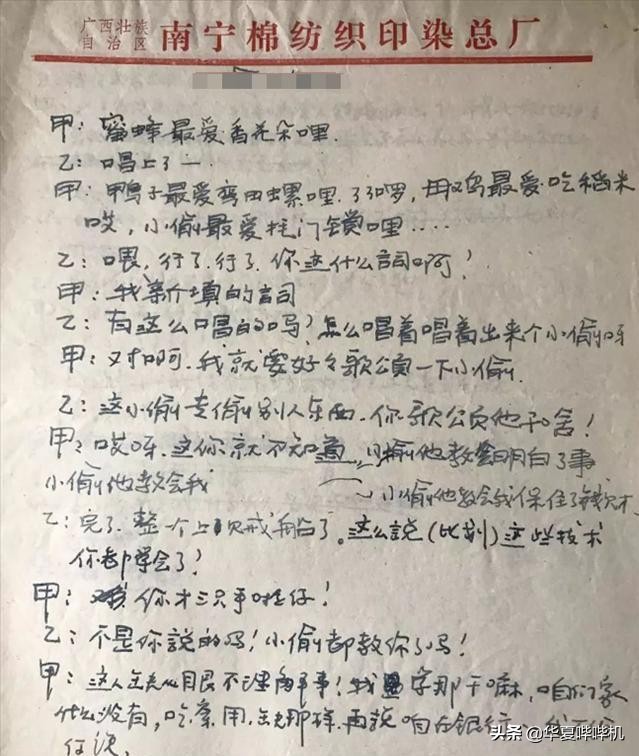 广西壮族
自治区 南宁棉纺织印染总厂
甲：蜜蜂最爱香花朵哩.
乙：唱上了一
甲：鸭子最爱弯田螺哩.了了啰，最爱吃稻米
哎，小偷最爱找门锁哩……
乙：喂，行了.行了.你这什么词啊？
甲：我新填的词
乙：有这么唱的吗？怎么唱着唱着出来个小偷呀
甲：对啊.我就要好々歌颂一下小偷.
乙：这小偷专偷别人东西.你歌颂他干啥！
甲：哎呀.这你就不知道 小偷他教会明白了事
小偷他教会我 小偷他教会我保住了钱财.
乙：完了.整一个上贼船了。这么説（比划）这些技术
你都学会了！
甲：你才三只手啦仔！
乙：不是你説的吗！小偷都教你了吗！
甲：这人缺心眼不 事！我学那干嘛.咱们家
什么没有，吃 用 那样 咱白银行
头条 @华夏哔哔机